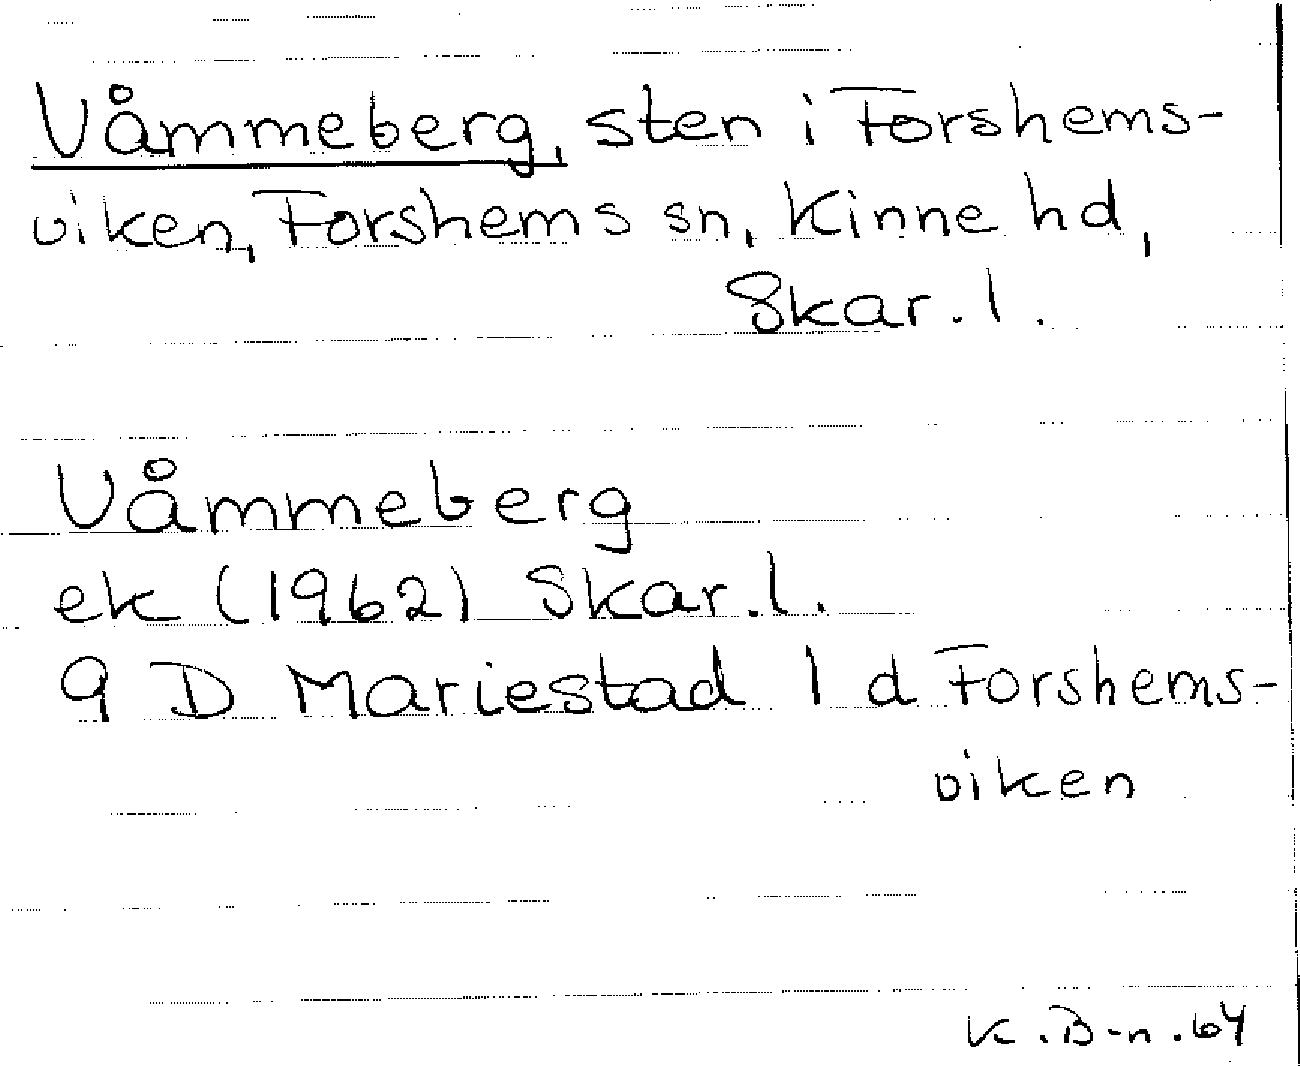 Våmmeberg, sten i Forshems-
viken, Forshems sn, Kinne hd,
Skar. l.
Våmmeberg
ek (1962) Skar. l.
9 D Mariestad 1 d Forshems-
viken
K. B-n. 64